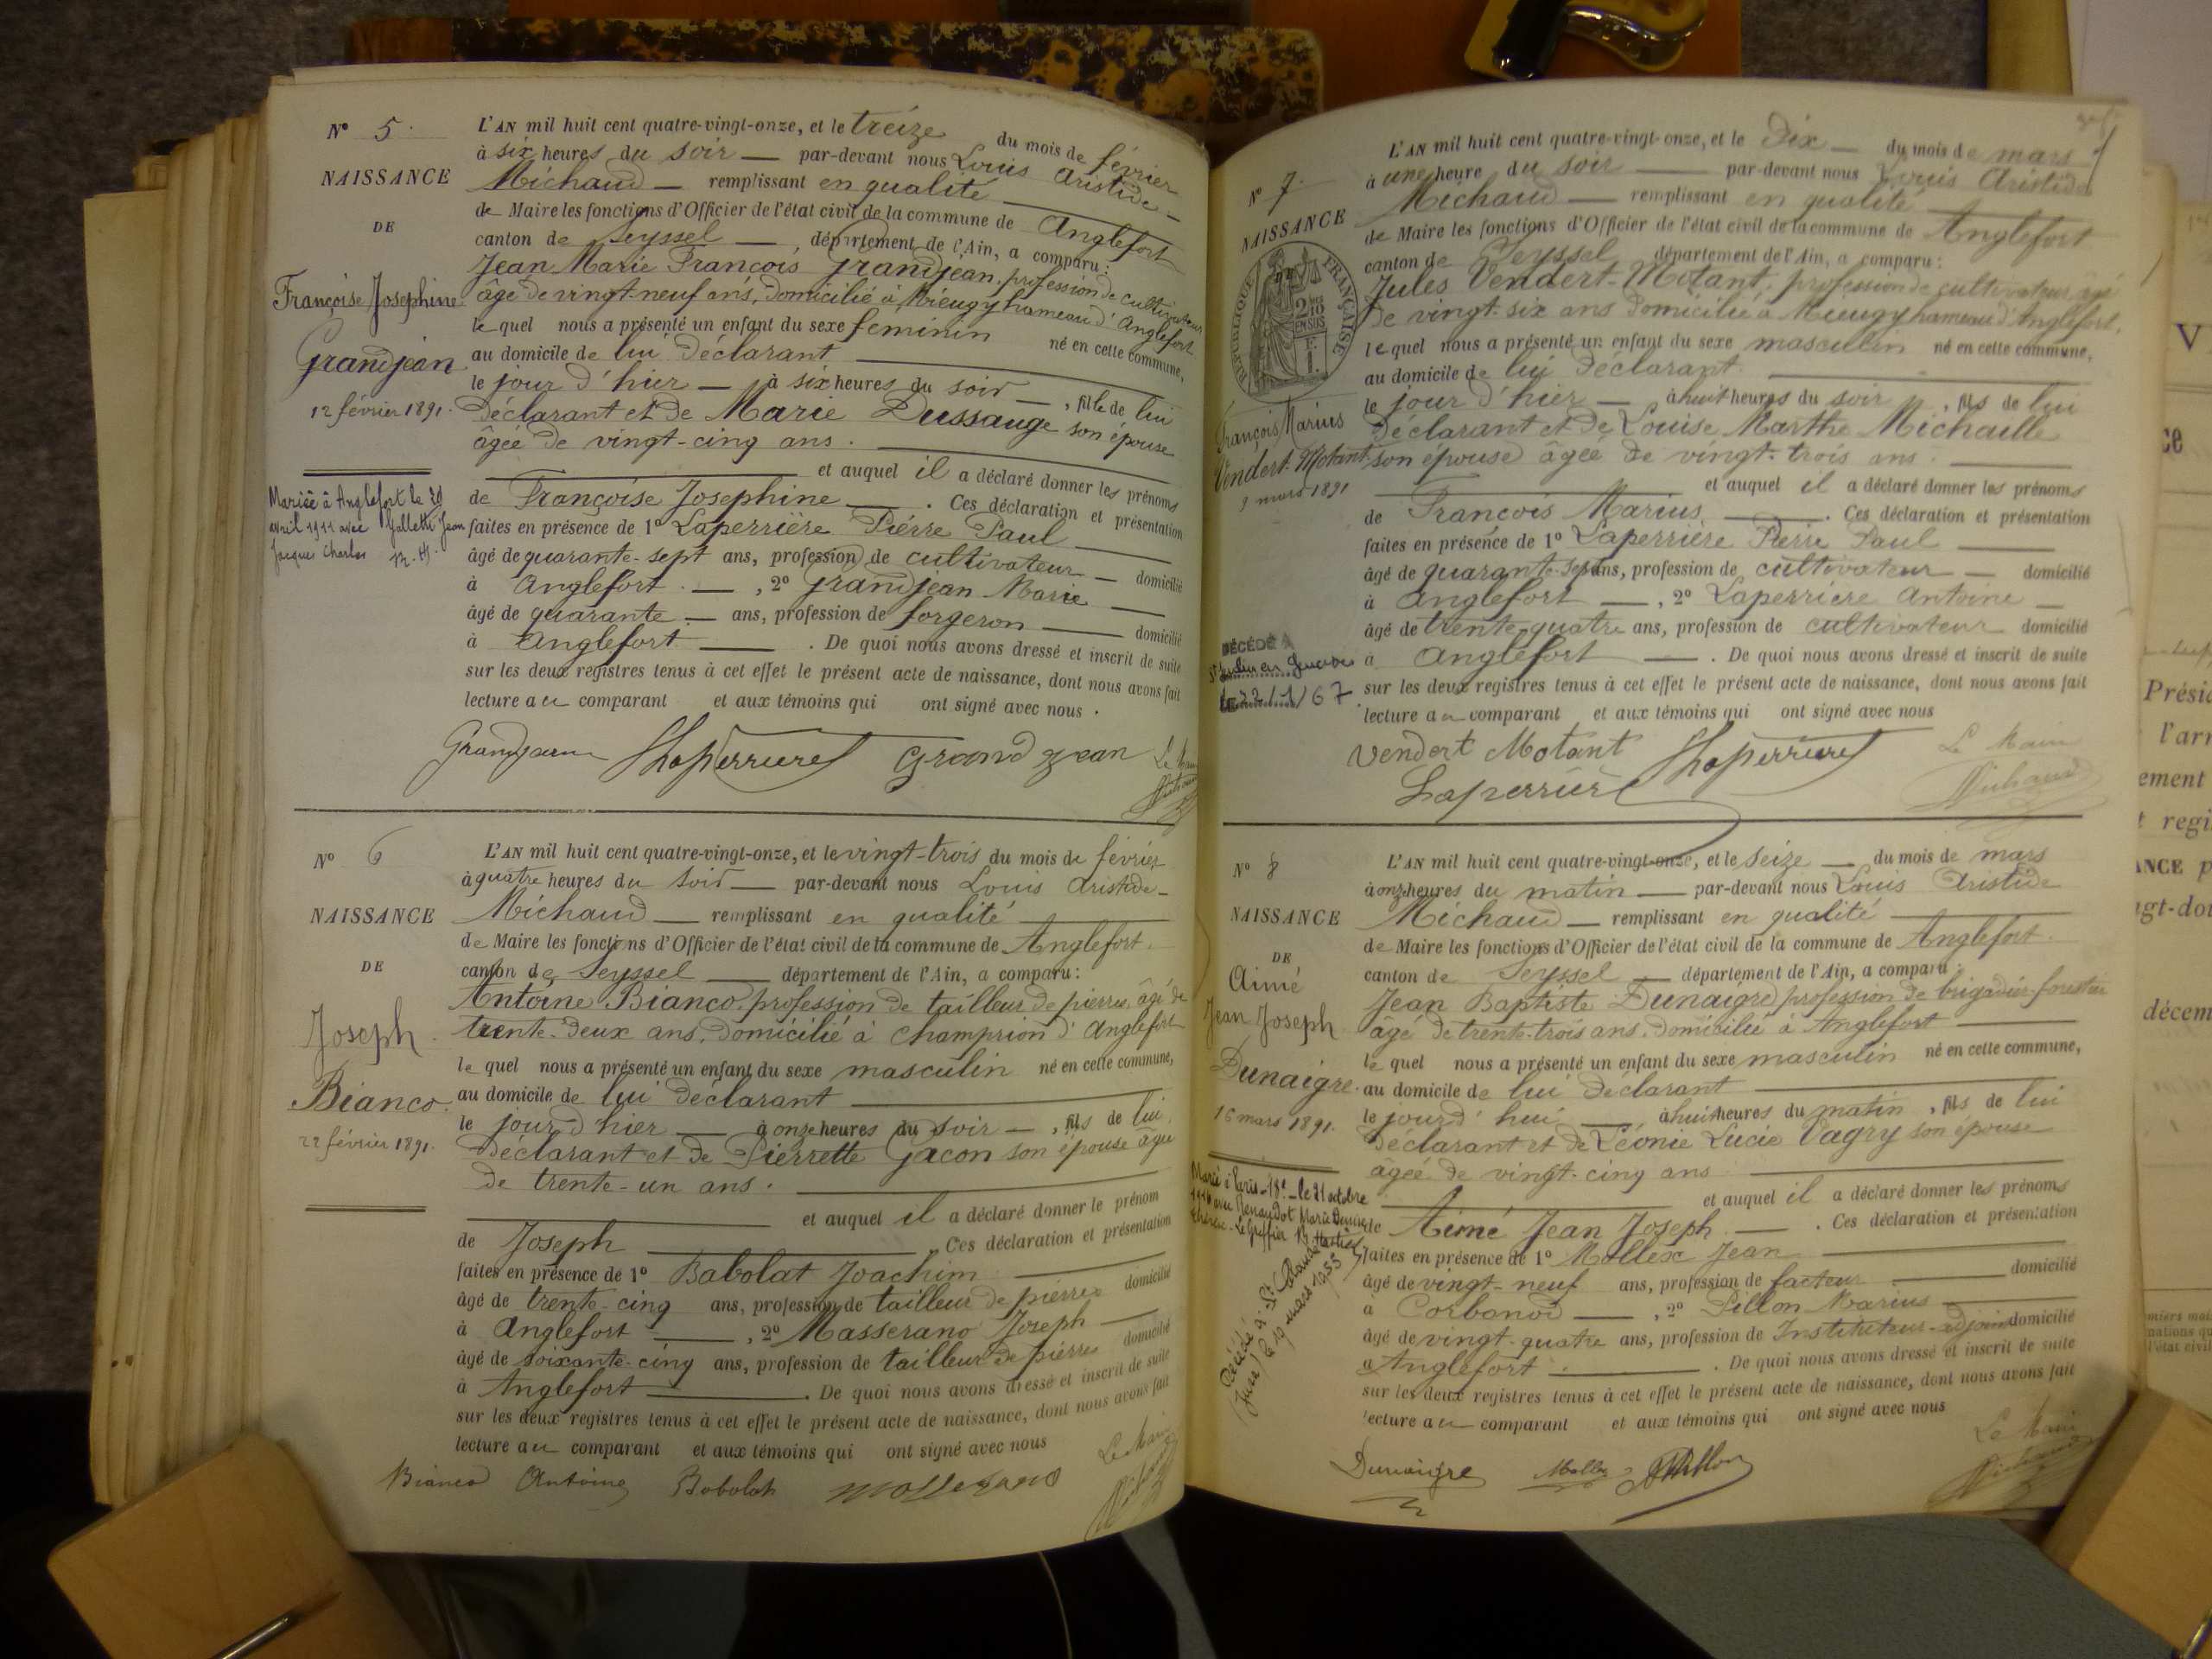 N° 5.
NAISSANCE
DE
Françoise Josephine
Grandjean
12 février 1891.
Mariée à Anglefort le 29
avril 1911 avec Galletti Jean
Jacques Charles
L'AN mil huit cent quatre-vingt-onze, et le treize du mois de février
à six heures du soir — par-devant nous Louis Aristide
Michaud — remplissant en qualité
de Maire les fonctions d'Officier de l'état civil de la commune de Anglefort
canton de Seyssel —, département de l'Ain, a comparu:
Jean Marie François Grandjean, profession de cultivateur
âgé de vingt-neuf ans, domicilié à Mieugy hameau d'Anglefort
lequel nous a présenté un enfant du sexe feminin né en cette commune,
au domicile de lui déclarant
le jour d'hier — à six heures du soir —, fille de lui
déclarant et de Marie Dussauge son épouse
âgée de vingt-cinq ans.
et auquel il a déclaré donner les prénoms
de Françoise Josephine — . Ces déclaration et présentation
faites en présence de 1° Laperrière Pierre Paul
âgé de quarante-sept ans, profession de cultivateur — domicilié
à Anglefort —, 2° Grandjean Marie
âgé de quarante — ans, profession de forgeron — domicilié
à Anglefort — . De quoi nous avons dressé et inscrit de suite
sur les deux registres tenus à cet effet le présent acte de naissance, dont nous avons fait
lecture au comparant et aux témoins qui ont signé avec nous.
Grandjean Laperriere Grandjean Le Maire
Michaud
N° 6
NAISSANCE
DE
Joseph
Bianco.
22 février 1891.
L'AN mil huit cent quatre-vingt-onze, et le vingt-trois du mois de février
à quatre heures du soir — par-devant nous Louis Aristide
Michaud — remplissant en qualité
de Maire les fonctions d'Officier de l'état civil de la commune de Anglefort.
canton de Seyssel — département de l'Ain, a comparu:
Antoine Bianco profession de tailleur de pierres, âgé de
trente-deux ans, domicilié à Champrion d'Anglefort
lequel nous a présenté un enfant du sexe masculin né en cette commune,
au domicile de lui déclarant
le jour d'hier — à onze heures du soir —, fils de lui
déclarant et de Pierrette Gacon son épouse âgée
de trente-un ans.
et auquel il a déclaré donner le prénom
de Joseph — . Ces déclaration et présentation
faites en présence de 1° Babolat Joachim
âgé de trente-cinq ans, profession de tailleur de pierres domicilié
à Anglefort —, 2° Masserano Joseph
âgé de soixante-cinq ans, profession de tailleur de pierres domicilié
à Anglefort — . De quoi nous avons dressé et inscrit de suite
sur les deux registres tenus à cet effet le présent acte de naissance, dont nous avons fait
lecture au comparant et aux témoins qui ont signé avec nous
Le Maire
Bianco Antoine Babolat Masserano Michaud
N° 7.
NAISSANCE
RÉPUBLIQUE FRANÇAISE
2/10
EN SUS
François Marius
Vendert-Motant
9 mars 1891
DÉCÉDÉ A
St Julien en Genevois
LE 22/1/67.
L'AN mil huit cent quatre-vingt-onze, et le dix — du mois de mars
à une heure du soir — par-devant nous Louis Aristide
Michaud — remplissant en qualité
de Maire les fonctions d'Officier de l'état civil de la commune de Anglefort
canton de Seyssel département de l'Ain, a comparu:
Jules Vendert-Motant, profession de cultivateur, âgé
de vingt-six ans domicilié à Mieugy hameau d'Anglefort,
lequel nous a présenté un enfant du sexe masculin né en cette commune,
au domicile de lui déclarant.
le jour d'hier — à huit heures du soir, fils de lui
déclarant et de Louise Marthe Michaille
son épouse âgée de vingt-trois ans.
et auquel il a déclaré donner les prénoms
de François Marius — . Ces déclaration et présentation
faites en présence de 1° Laperrière Pierre Paul
âgé de quarante-sept ans, profession de cultivateur — domicilié
à Anglefort —, 2° Laperrière Antoine
âgé de trente-quatre ans, profession de cultivateur domicilié
à Anglefort — . De quoi nous avons dressé et inscrit de suite
sur les deux registres tenus à cet effet le présent acte de naissance, dont nous avons fait
lecture au comparant et aux témoins qui ont signé avec nous
Vendert Motant Laperriere Le Maire
Laperriere Michaud
N° 8
NAISSANCE
DE
Aimé
Jean Joseph
Dunaigre.
16 mars 1891.
Marié à Paris-18e-le 21 octobre
avec Renaudot Marie Denise
Thérèse. Le Greffier
Décédé à St Claude
(Jura) le 19 mars 1955
L'AN mil huit cent quatre-vingt-onze, et le seize — du mois de mars
à onze heures du matin — par-devant nous Louis Aristide
Michaud — remplissant en qualité
de Maire les fonctions d'Officier de l'état civil de la commune de Anglefort.
canton de Seyssel — département de l'Ain, a comparu:
Jean Baptiste Dunaigre profession de brigadier forestier
âgé de trente-trois ans, domicilié à Anglefort
lequel nous a présenté un enfant du sexe masculin né en cette commune,
au domicile de lui déclarant
le jourd'hui — à huit heures du matin, fils de lui
déclarant et de Léonie Lucie Vagry son épouse
âgée de vingt-cinq ans
et auquel il a déclaré donner les prénoms
de Aimé Jean Joseph — . Ces déclaration et présentation
faites en présence de 1° Mollex Jean
âgé de vingt-neuf ans, profession de facteur — domicilié
à Corbonod —, 2° Pillon Marius
âgé de vingt-quatre ans, profession de Instituteur-adjoint domicilié
à Anglefort — . De quoi nous avons dressé et inscrit de suite
sur les deux registres tenus à cet effet le présent acte de naissance, dont nous avons fait
lecture au comparant et aux témoins qui ont signé avec nous
Le Maire
Dunaigre Mollex Pillon Michaud